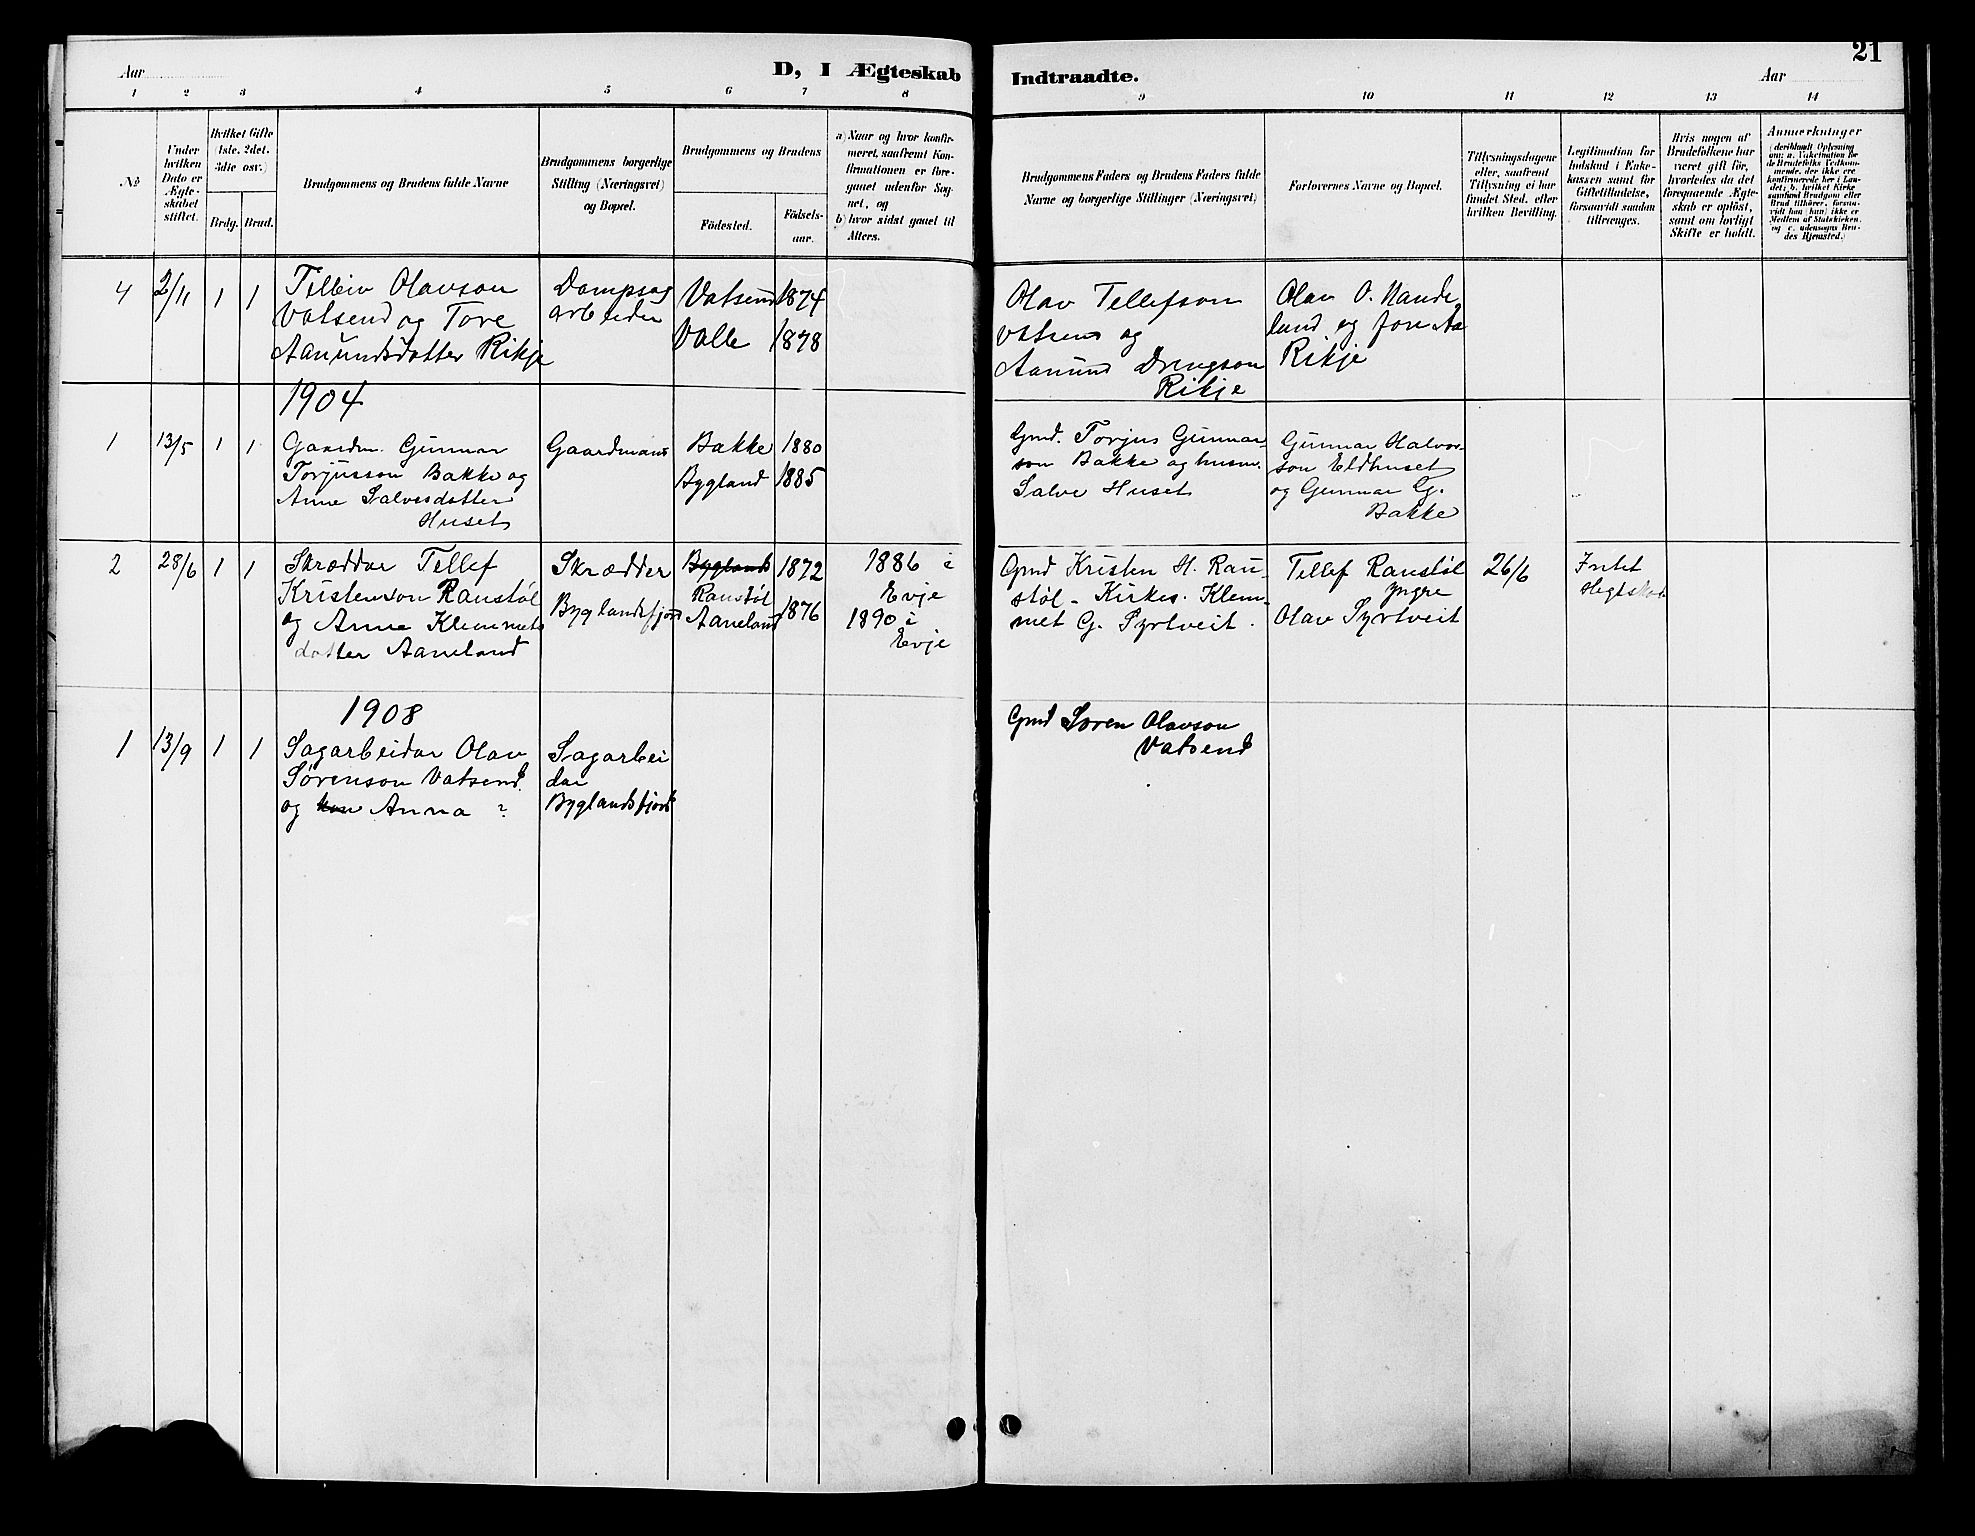 21
Aar
D, I Ægteskab
Indtraadte.
Aar
1 2 3 4 5 6 7 8
9 10 11 12 13 14
No
Under hvilken Dato er Ægteskabet stiftet.
Hvilket Gifte (1ste, 2det, 3die osv.)
Brdg. Brud.
Brudgommens og Brudens fulde Navne
Brudgommens borgerlige Stilling (Næringsvei) og Bopæl.
Brudgommens og Brudens
Födested.
Födsels-aar.
a) Naar og hvor konfir-
meret, saafremt Kon-
firmationen er fore-
gaaet udenfor Sog-
net, og
b) hvor sidst gaaet til
Alters.
Brudgommens Faders og Brudens Faders fulde
Navne og borgerlige Stillinger (Næringsvei)
Forlovernes Navne og Bopæl.
Tillysningsdagene
eller, saafremt
Tillysning ei har
fundet Sted, efter
hvilken Bevilling.
Legitimation for
Indskud i Enke-
kassen samt for
Giftetilladelse,
forsaavidt saadan
tiltrænges.
Hvis nogen af
Brudefolkene har
været gift før,
hvorledes da det
foregaaende Ægte-
skab er oplöst,
samt om lovligt
Skifte er holdt.
Anmerkninger
(deriblandt Oplysning
om: a. Vakcination for
de Brudefolks Vedkom-
mende, der ikke ere
konfirmerede her i Lan-
det; b. hvilket Kirke-
samfund Brudgom eller
Brud tilhörer, forsaa-
vidt han (hun) ikke er
Medlem af Statskirken,
og c. udensogns Bru-
des Hjemsted.)
4 2/11 1 1
Telleiv Olavson
Vatsend og Tore
Aanundsdotter Rikje
Dampsag
arbeider
Vatsend 1874
Valle 1878
Olav Tellefson
Vatsend og
Aanund Drengson
Rikje
Olav O.
land og
Rikje
1904
1 13/5 1 1
Gaardm. Gunnar
Torjusson Bakke og
Anne Salvesdotter
Huset
Gaardmand
Bakke 1880
Bygland 1885
Gmd. Torjus Gunnar-
son Bakke og husm.
Salve Huset
Gunnar Halvor-
son Eldhuset
og Gunnar G.
Bakke
2 28/6 1 1
Skræddar Tellef
Kristenson Raustøl
og Anne Klemmets
dotter Aaneland
Skrædder
Byglandsfjord
Bygland
Raustøl 1872
Aaneland 1876
1886 i
Evje
1890 i
Evje
Gmd Kristen H. Rau-
støl - Kirkes. Klem-
met G. Syrtveit.
Tellef Raustøl
yngre
Olav Syrtveit
26/6
Intet
1908
1 13/9 1 1
Sagarbeidar Olav
Sørenson Vatsend
og Anna ?
Sagarbei
dar
Byglandsfjord
Gmd Søren Olavson
Vatsend